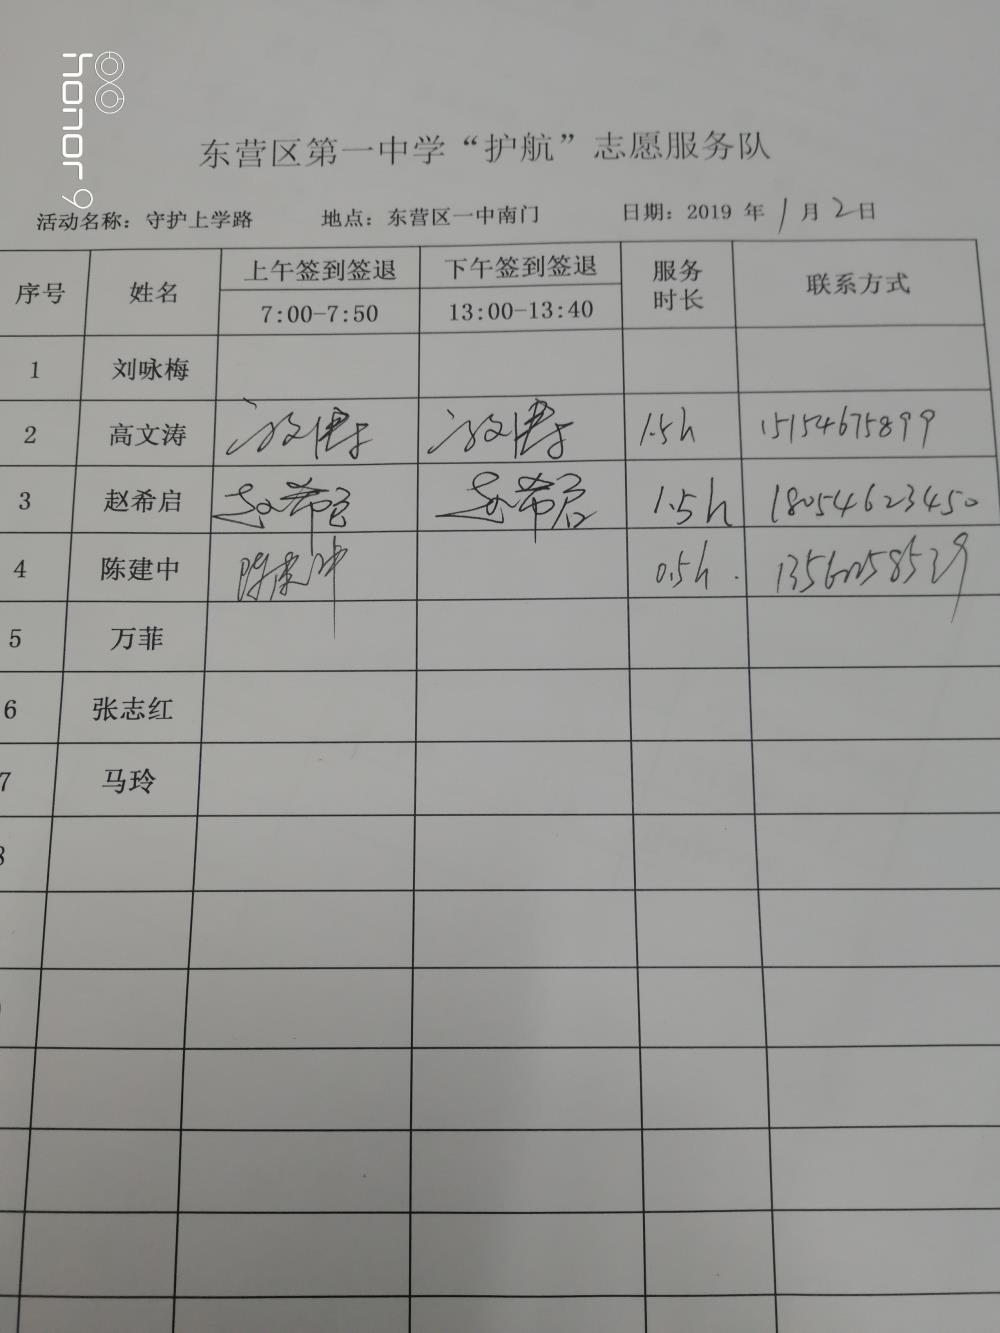 honor 9
东营区第一中学“护航”志愿服务队
活动名称：守护上学路 地点：东营区一中南门 日期：2019 年 1 月 2 日
序号 姓名 上午签到签退 下午签到签退 服务时长 联系方式
7:00-7:50 13:00-13:40
1 刘咏梅
2 高文涛 1.5h 15154675899
3 赵希启 赵希启 赵希启 1.5h 18054623450
4 陈建中 陈建中 0.5h.
5 万菲
6 张志红
7 马玲
8